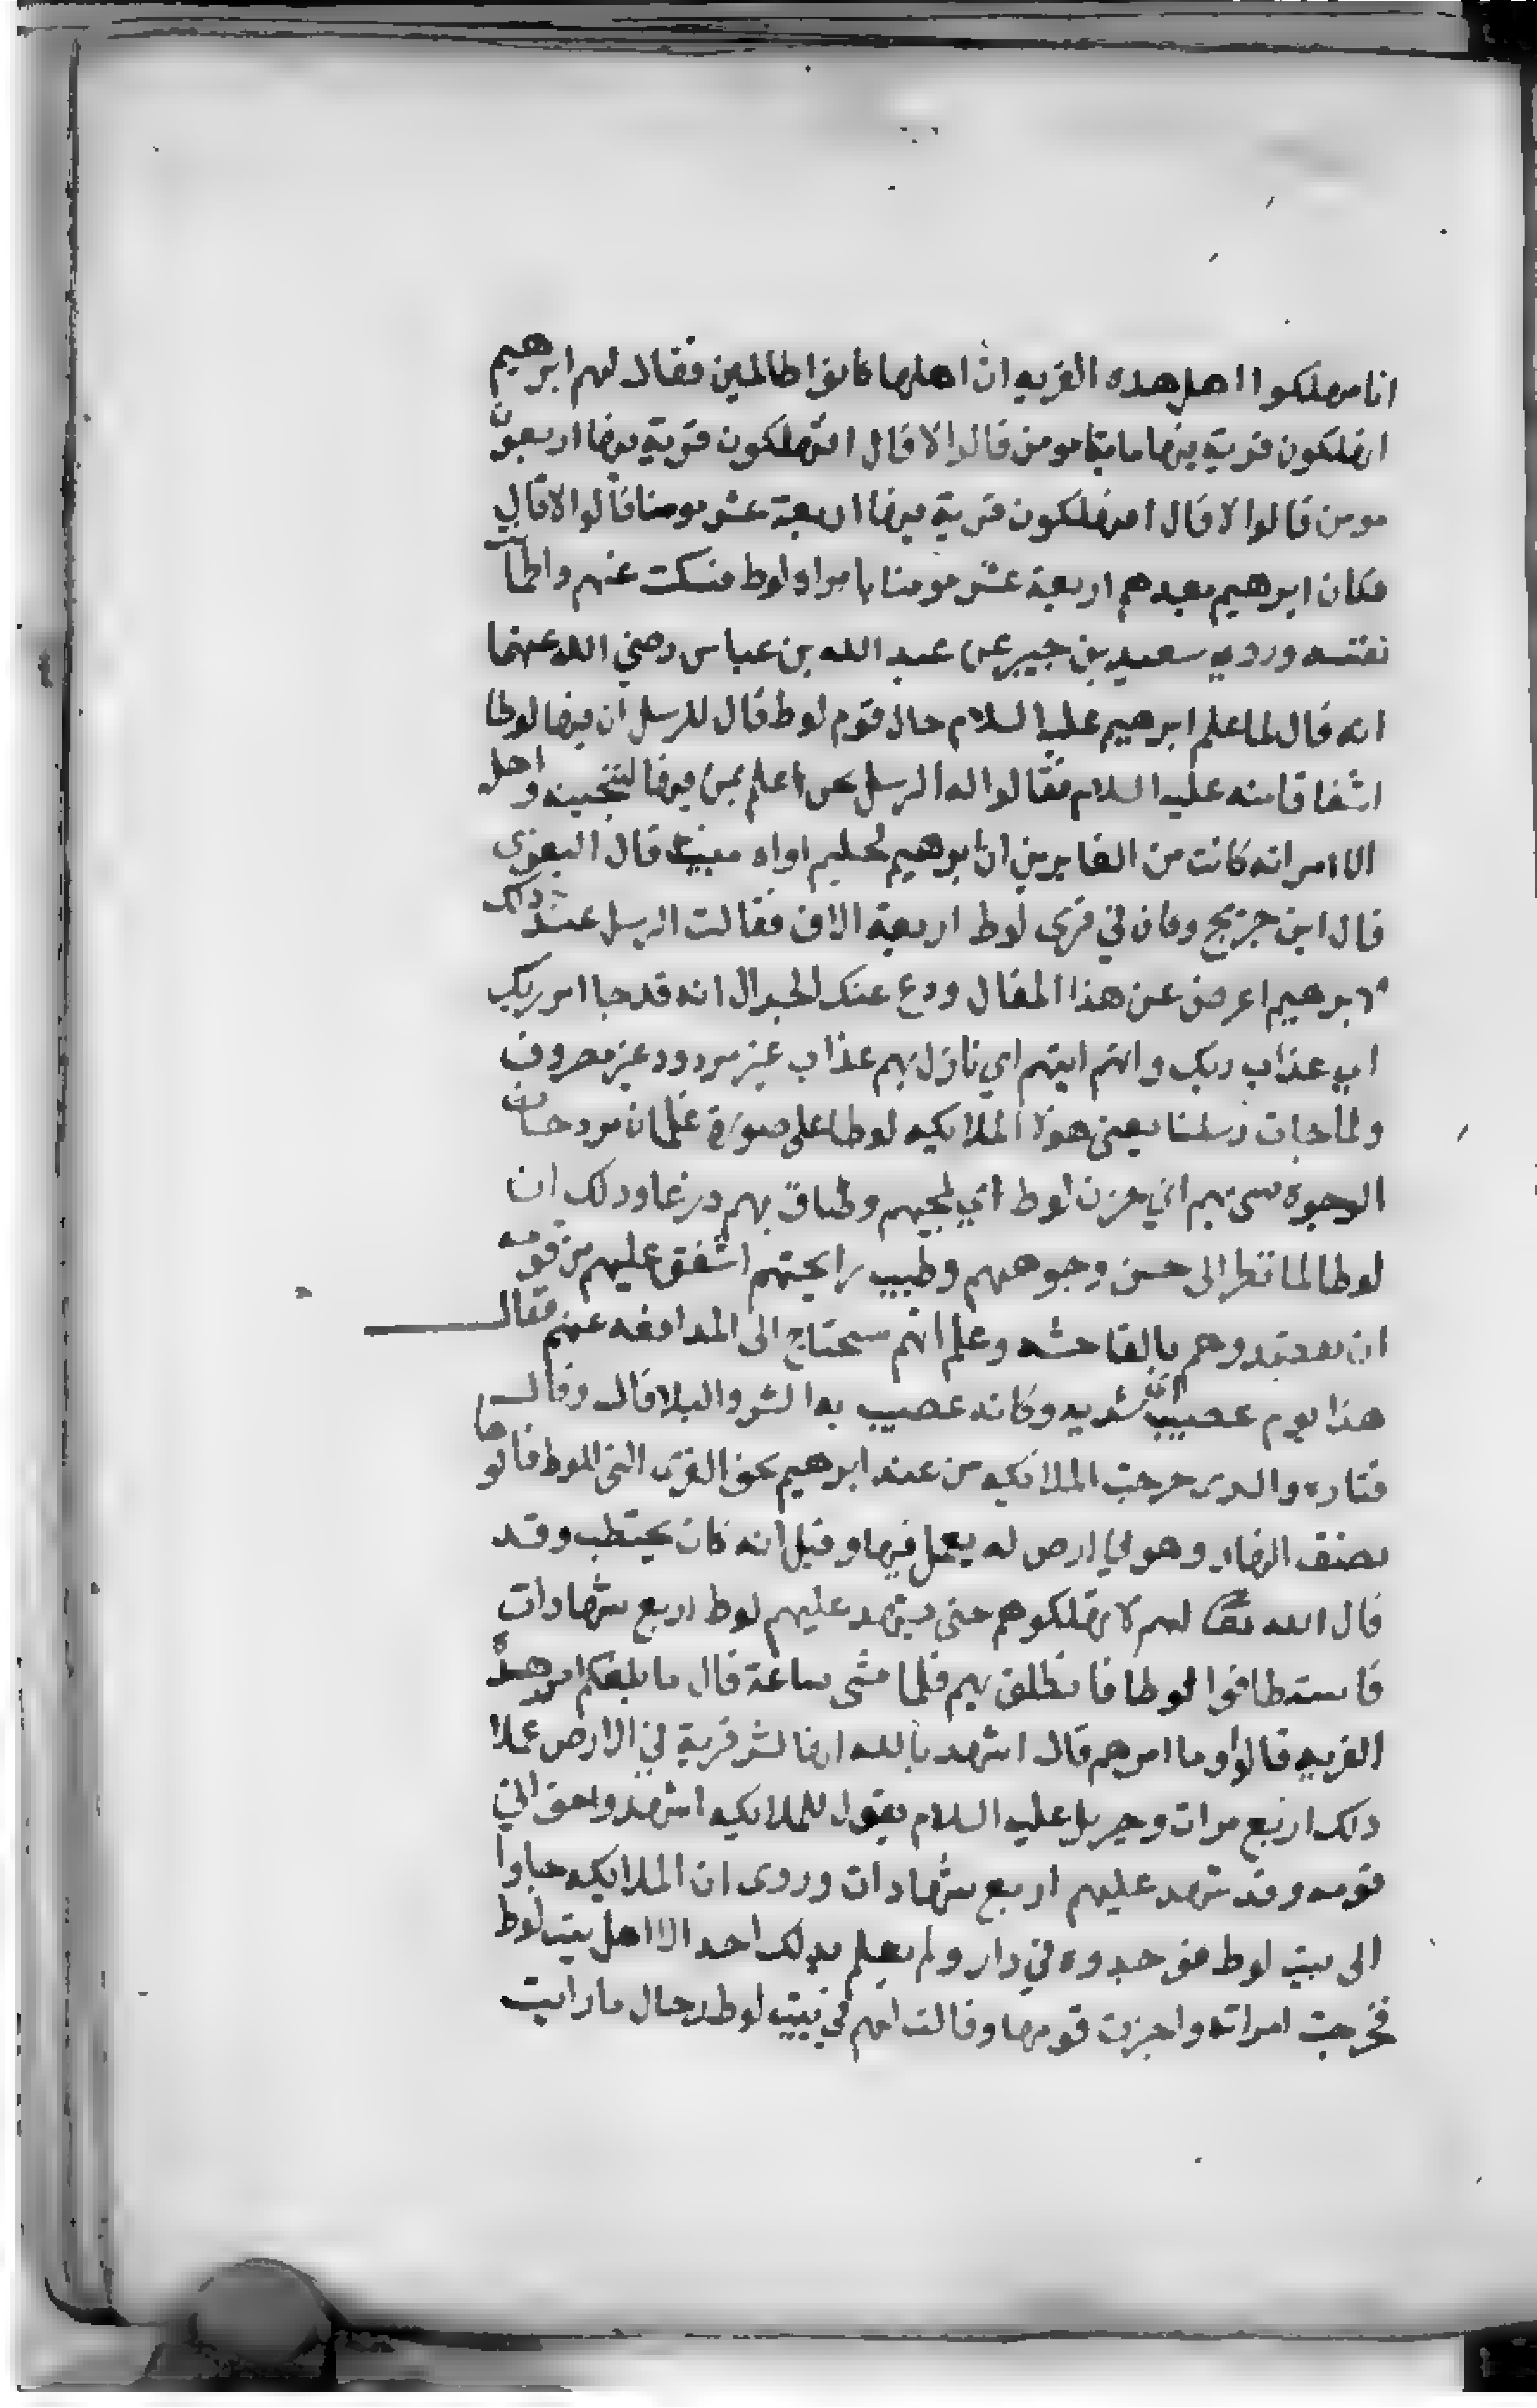 انا مهلكوا اهل هده القريه ان اهلها كانوا ظالمين فقال لهم ابرهيم
اتهلكون قرية فيها مايتا مومن قالوا لا قال اتهلكون قرية فيها اربعون
مومن قالوا لا قال اتهلكون قرية فيها اربعة عشر مومنا قالوا لا قال
فكان ابرهيم يعدهم اربعة عشر مومنا بامراه لوط فسكت عنهم واطمأ
نفسه وروي سعيد بن جبير عن عبد الله بن عباس رضي الله عنهما
انه قال لما علم ابرهيم عليه السلام حال قوم لوط قال للرسل ان فيها لوطا
اشفاقا منه عليه السلام فقالوا له الرسل نحن اعلم بمن فيها لننجينه واهل
الا امراته كانت من الغابرين ان ابرهيم لحليم اواه منيب قال البغوي
قال ابن جريج وكان في قرى لوط اربعة الاف فقالت الرسل عند دلك
لابرهيم اعرض عن هذا المقال ودع عنك الجدال انه قد جا امر ربك
اي عذاب ربك وانهم اتيهم اي نازل بهم عذاب غير مردود غير مصروف
ولما جات رسلنا يعني هولا الملايكه لوطا على صورة غلمان مرد حسان
الوجوه سى بهم اي حزن لوط اي لمجيهم وضاق بهم درعا ودلك ان
لوطا لما نظر الى حسن وجوههم وطيب رايحتهم اشفق عليهم من قومه
ان يقصدوهم بالفاحشه وعلم انهم سيحتاج الى المدافعه عنهم فقال
هذا يوم عصيب اي شديد وكانه عصيب به الشر والبلا قال وقال
قتاده والسدى خرجت الملائكه من عند ابرهيم نحو القرى التي للوط فاتوها
نصف النهار وهو في ارض له يعمل فيها وقيل انه كان يحتطب وقد
قال الله تعا لهم لا تهلكوهم حتى يشهد عليهم لوط اربع شهادات
فاستضافوا لوطا فانطلق بهم فلما مشى ساعة قال ما بلغكم امر هذه
القريه قالوا وما امرهم قال اشهد بالله انها لشر قرية في الارض عملا
دلك اربع مرات وجبريل عليه السلام يقول للملايكه اشهدوا حتى اتي
قومه وقد شهد عليهم اربع شهادات وروى ان الملايكه جاوا
الى بيت لوط فوجدوه في دار ولم يعلم بدلك احد الا اهل بيت لوط
فخرجت امراته واخبرت قومها وقالت لهم في بيت لوط رجال ما رايت